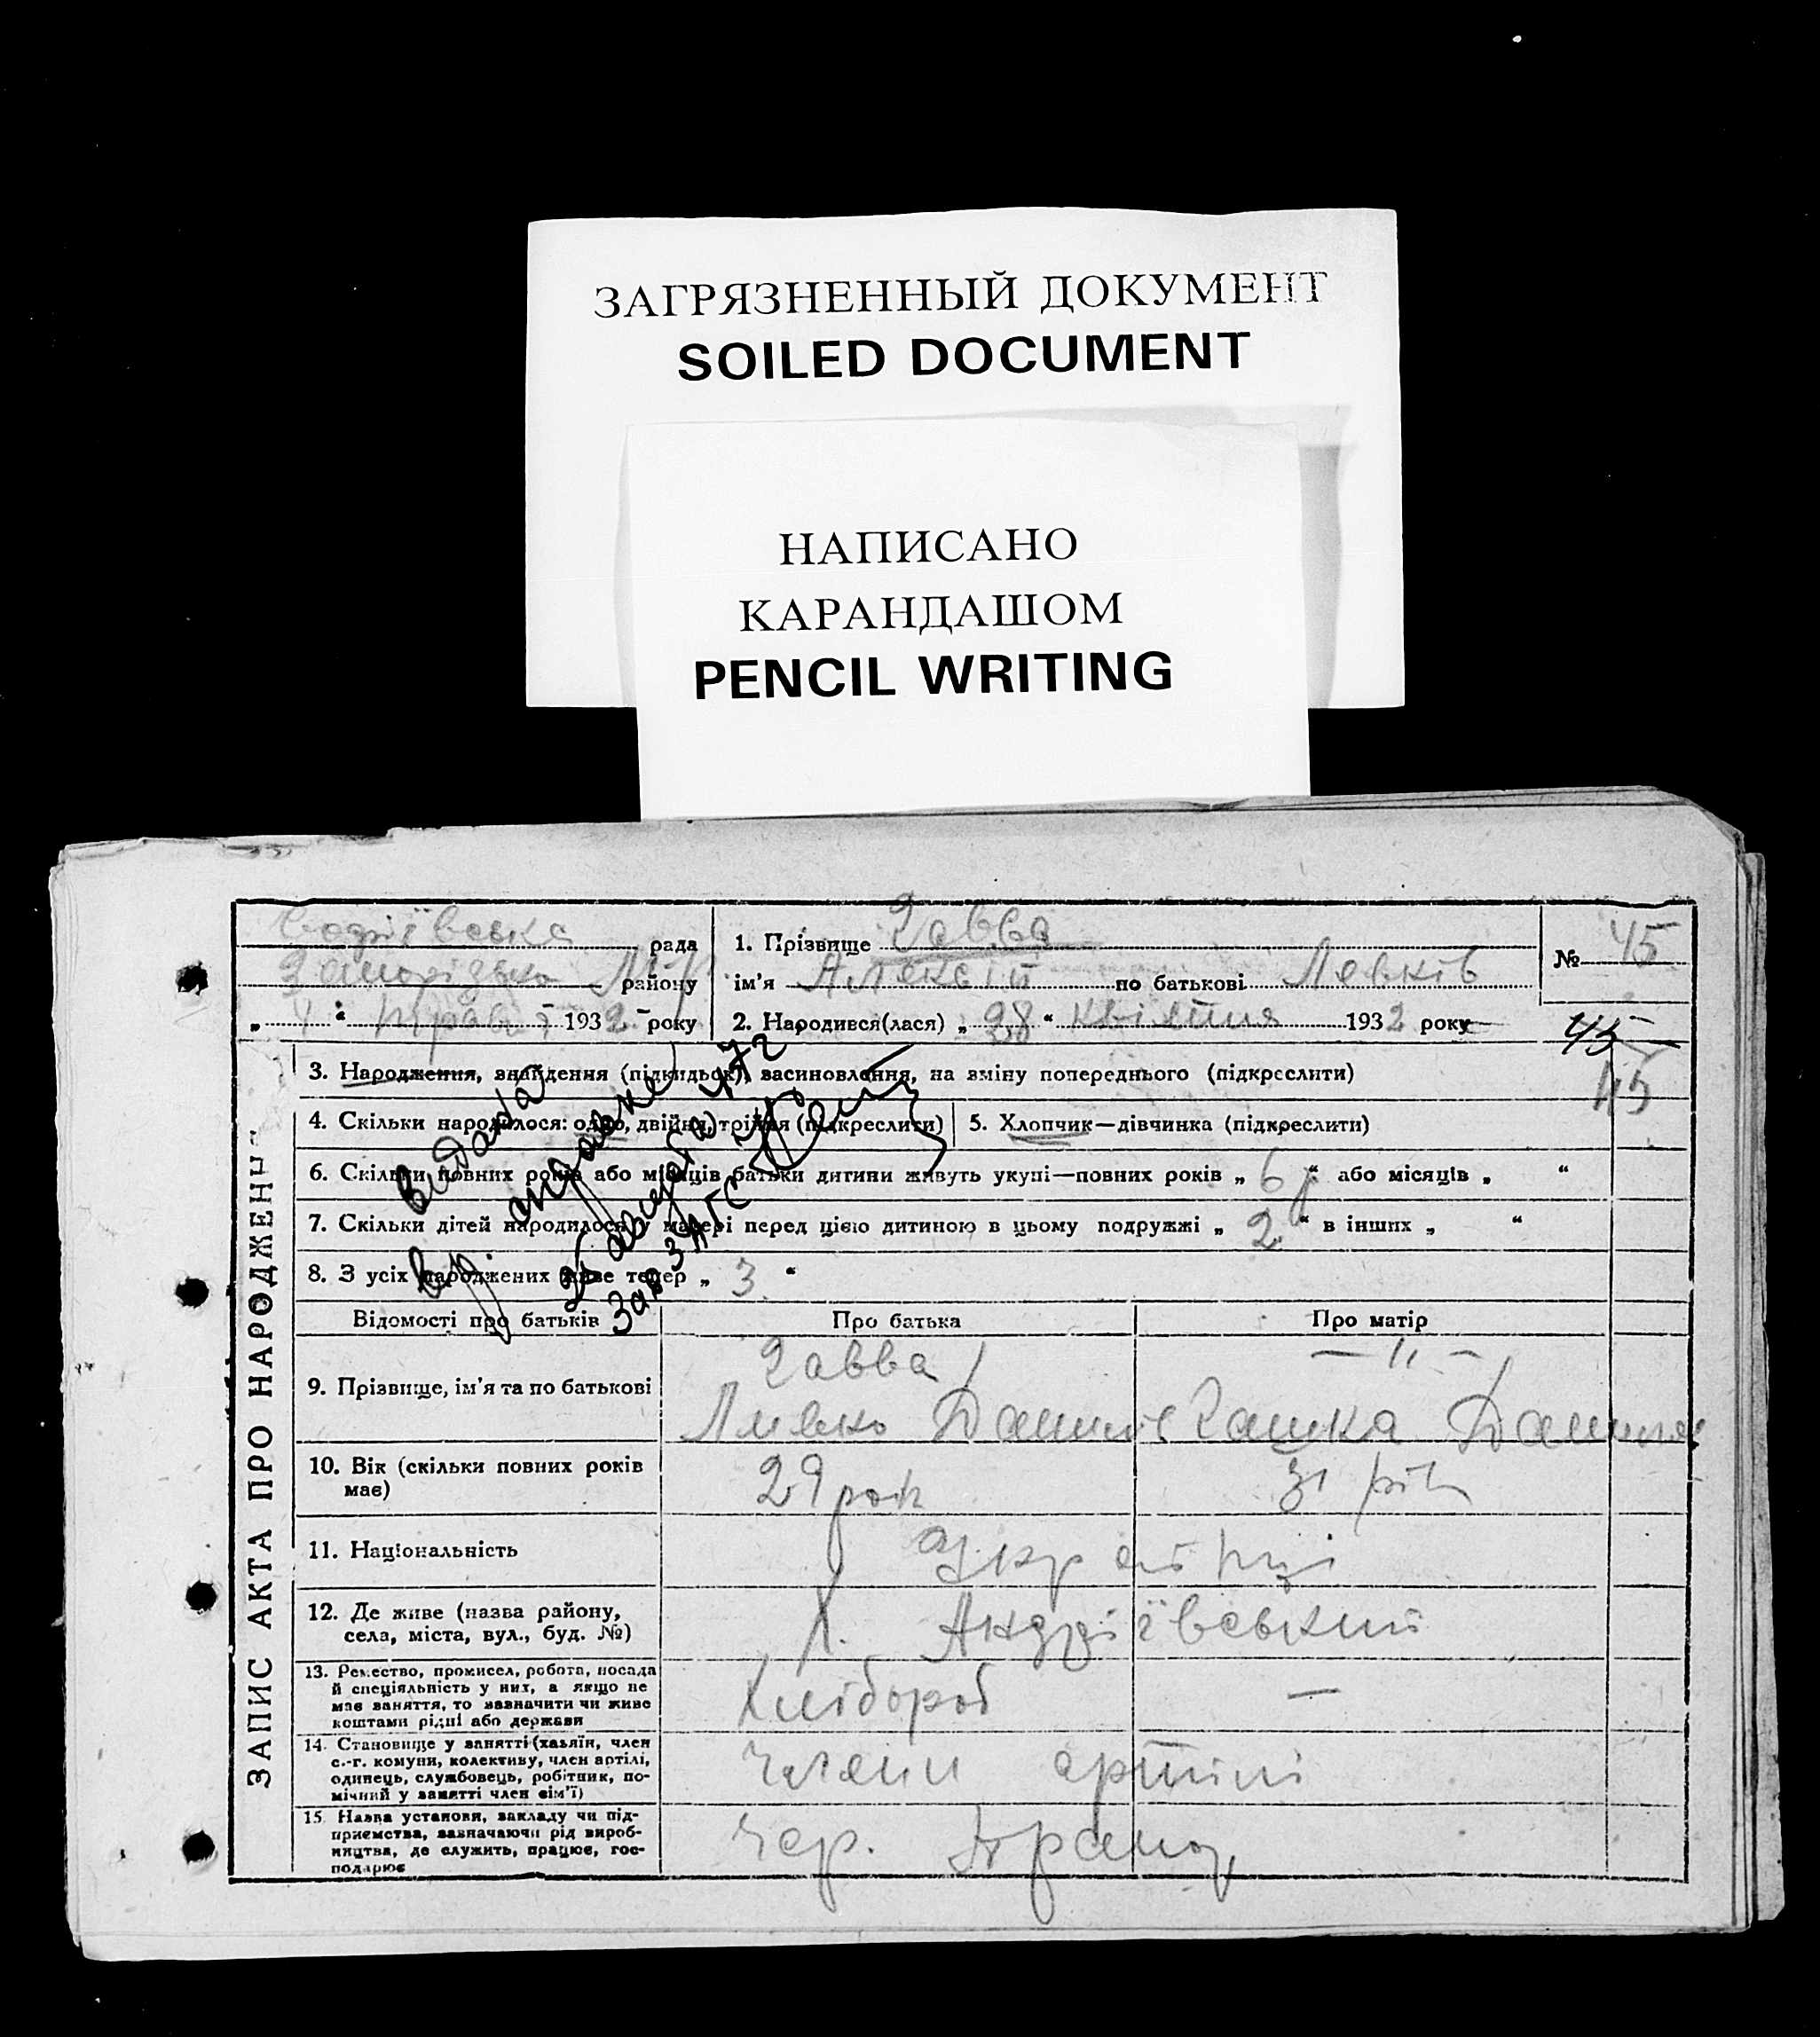 ЗАГРЯЗНЕННЫЙ ДОКУМЕНТ
SOILED DOCUMENT
НАПИСАНО
КАРАНДАШОМ
PENCIL WRITING
ЗАПИС АКТА ПРО НАРОДЖЕННЯ
рада
району
„ 4 “ 1932 року
1. Прізвище Гавва
ім’я Алексій по батькові Левків
2. Народився(лася) „ 28 “ квітня 1932 року
№ 45
45
45
3. Народження, знайдення (підкидьок), васиновлення, на зміну попереднього (підкреслити)
4. Скільки народилося: одно, двійня, трійня (підкреслити)
5. Хлопчик—дівчинка (підкреслити)
6. Скільки повних років або місяців батьки дитини живуть укупі—повних років „ 6 р “ або місяців „ “
7. Скільки дітей народилося у матері перед цією дитиною в цьому подружжі „ 2 “ в інших „ “
8. З усіх народжених живе тепер „ 3 “
Видана
справка
25 августа 1947 г
Зав ЗАГС
Відомості про батьків
Про батька
Про матір
9. Прізвище, ім’я та по батькові
Гавва
— " —
Данил
10. Вік (скільки повних років має)
29 рок
31 рік
11. Національність
Українці
12. Де живе (назва району, села, міста, вул., буд. №)
Х. Андріївський
13. Ремество, промисел, робота, посада й спеціяльність у них, а якщо не має заняття, то зазначити чи живе коштами рідні або держави
Хлібороб
—
14. Становище у занятті (хазяїн, член с.-г. комуни, колективу, член артілі, одинець, службовець, робітник, помічний у занятті член сім’ї)
члени артілі
15. Назва установи, закладу чи підприємства, зазначаючи рід виробництва, де служить, працює, господарює